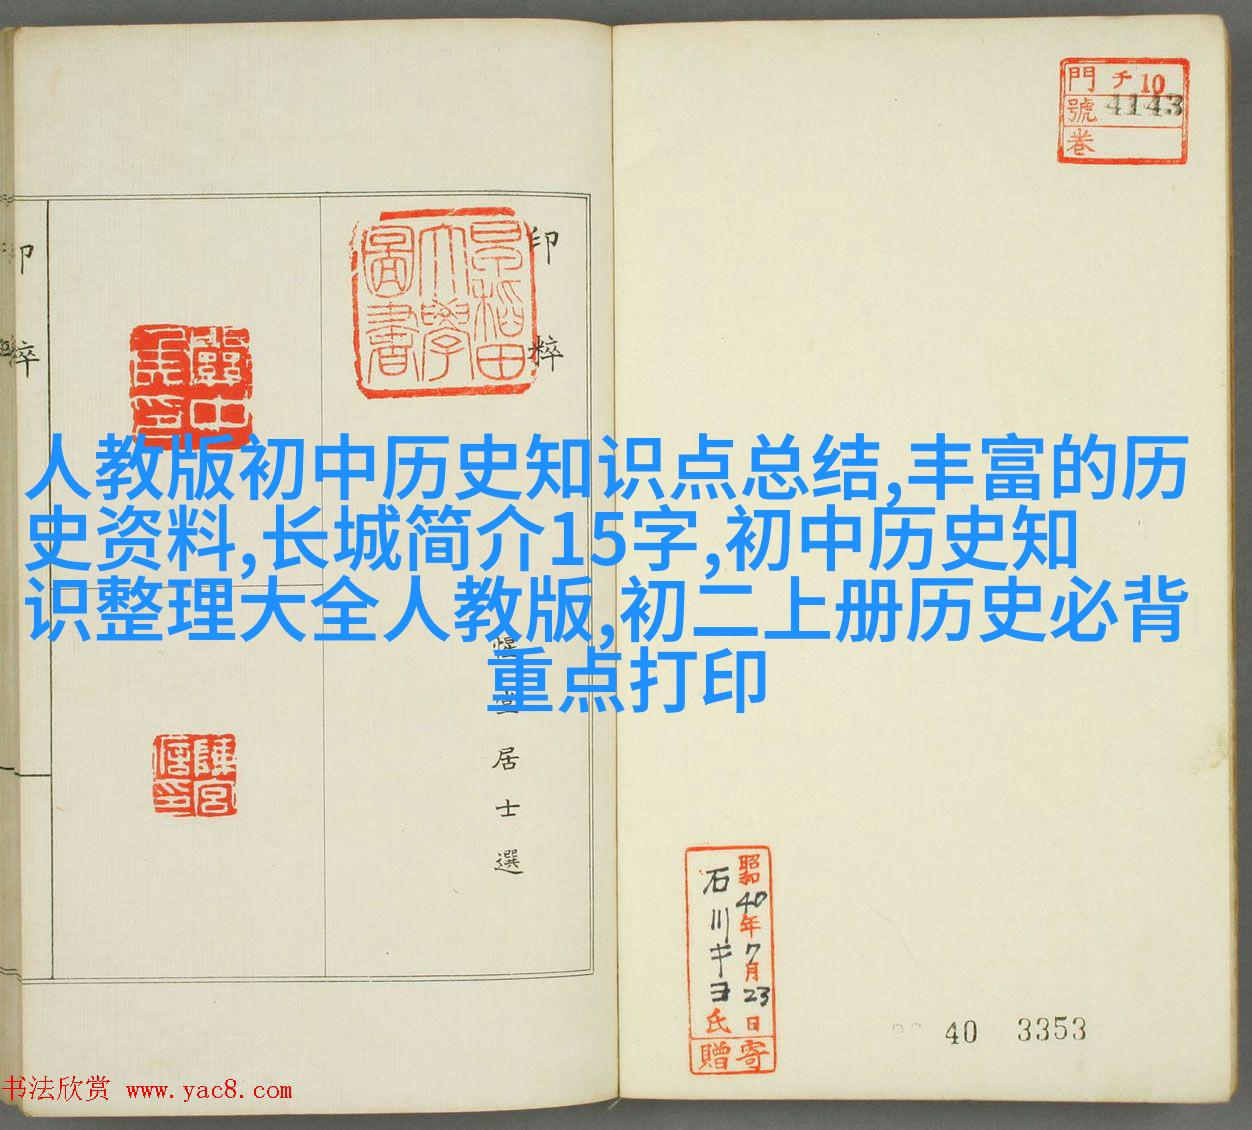 門 チ 10
號 4143
卷
印粹
印粹
早稻田大學圖書
人教版初中历史知识点总结,丰富的历
史资料,长城简介15字,初中历史知
识整理大全人教版,初二上册历史必背
重点打印
堂居士選
陳宮信印
昭和40年7月23日
石川キヨ氏
寄贈
40 3353
书法欣赏 www.yac8.com